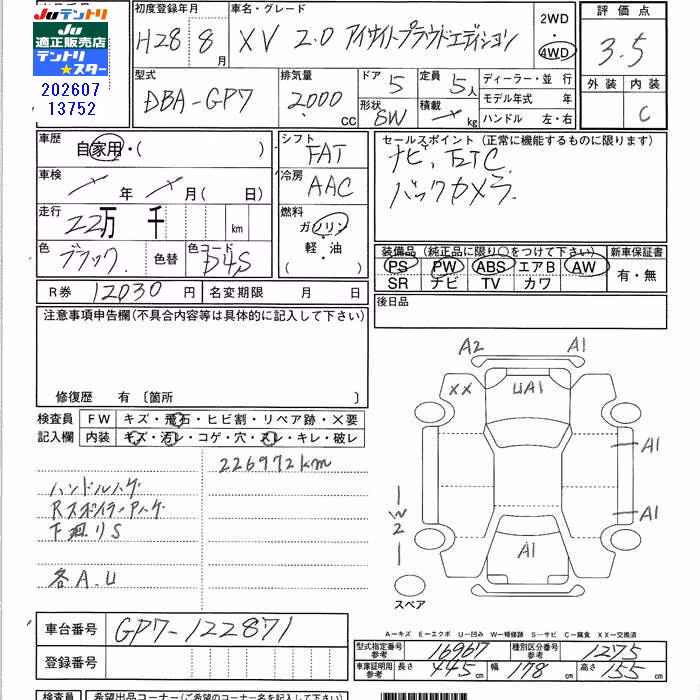 JUテントリ
JU
適正販売店
テントリ
★スター
202607
13752
初度登録年月 車名・グレード 2WD 4WD 評価点
H28 8月 XV 2.0 アイサイトプラウドエディション 3.5
外装 内装
C
型式 排気量 ドア 定員 ディーラー・並行
DBA-GP7 2000cc 5 5人 モデル年式 年
形状 積載 ハンドル 左・右
SW kg
車歴 自家用・( ) シフト セールスポイント(正常に機能するものに限ります)
FAT ナビ、ETC
車検 年 月( 日) 冷房 バックカメラ
AAC
走行 22万 千 km 燃料
ガソリン・軽・油
色 ブラック 色替 色コード D4S
装備品(純正品に限り○をつけて下さい) 新車保証書
PS PW ABS エアB AW 有・無
SR ナビ TV カワ
R券 12030円 名変期限 月 日 後日品
注意事項申告欄(不具合内容等は具体的に記入して下さい)
修復歴 有 〔箇所 〕
検査員 FW キズ・飛石・ヒビ割・リペア跡・×要
記入欄 内装 キズ・汚レ・コゲ・穴・スレ・キレ・破レ
226972km
ハンドルハゲ
Rスポイラーハゲ
下廻りS
各A.U
A2 A1
XX UA1
A1
A1
W2
A1
スペア
A-キズ E-エクボ U-凹み W-補修跡 S-サビ C-腐食 XX-交換済
車台番号 GP7-122871
登録番号
型式指定番号 参考 16967 種別区分番号 参考 1275
車庫証明用 参考 長さ 445cm 幅 178cm 高さ 155cm
検査員 希望出品コーナー(ご希望のコーナー名を記入して下さい)